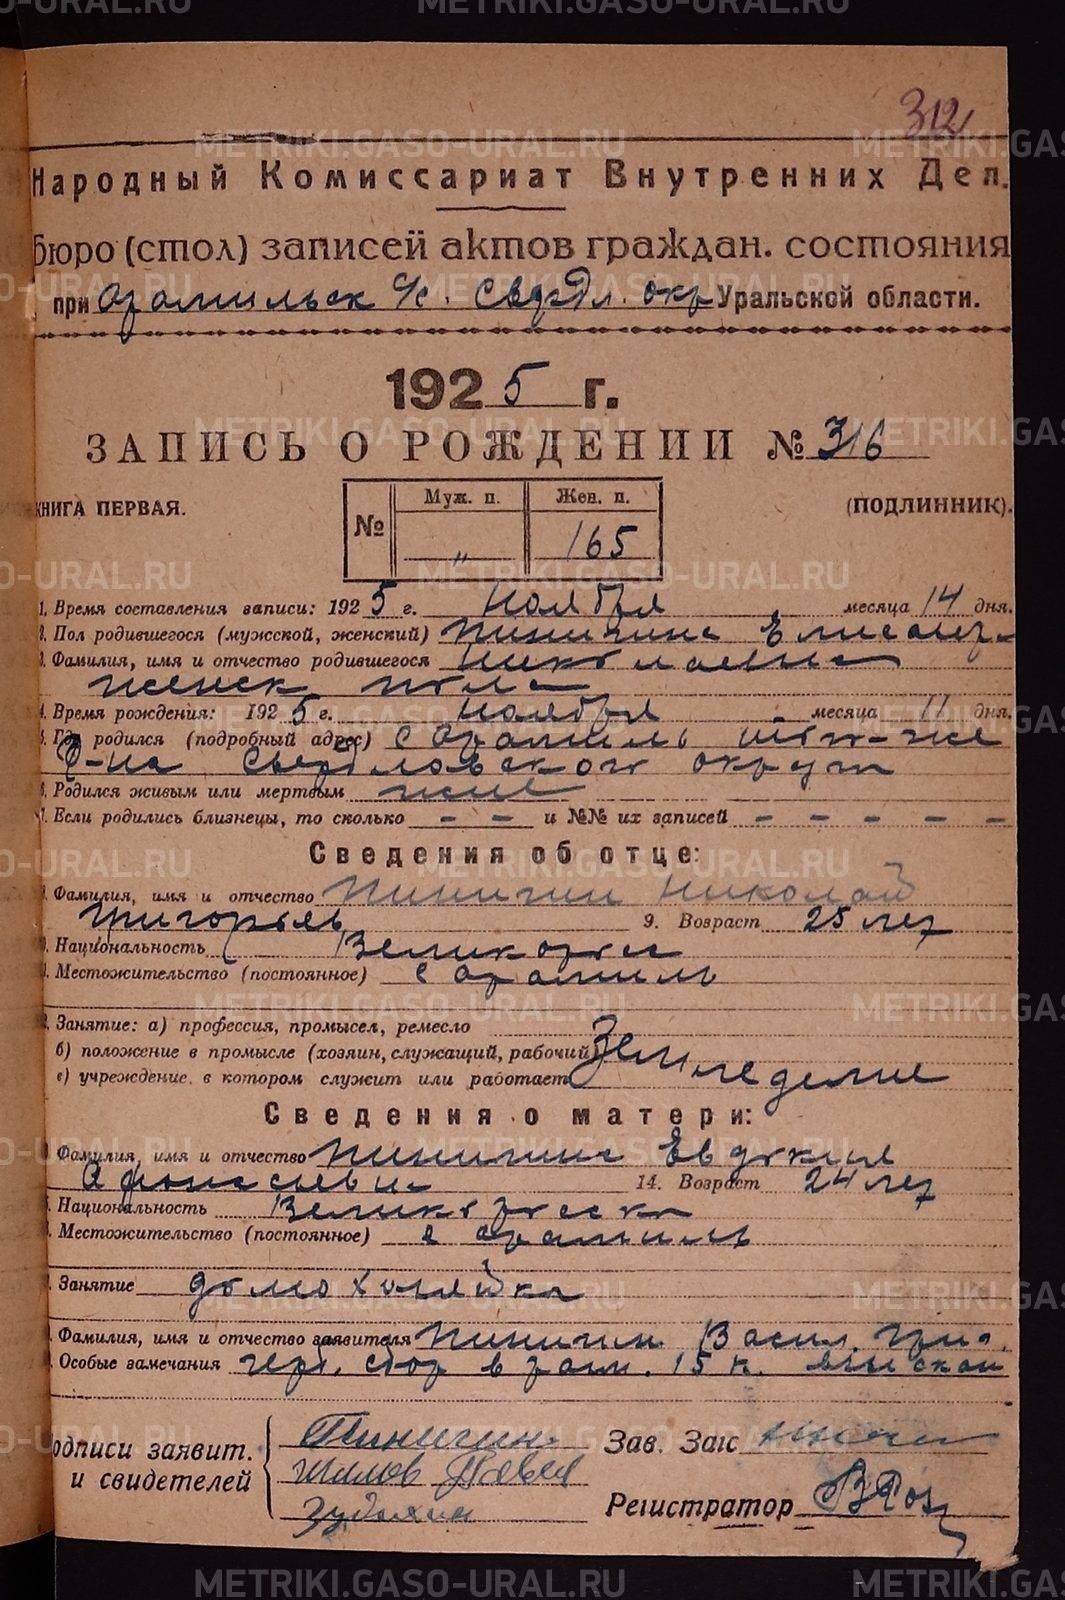 312
Народный Комиссариат Внутренних Дел.
бюро (стол) записей актов граждан. состояния
при Арамильск с/с. Свердл. окр Уральской области.
1925 г.
ЗАПИСЬ О РОЖДЕНИИ № 316
КНИГА ПЕРВАЯ.
№ Муж. п. Жен. п.
" 165
(ПОДЛИННИК).
1. Время составления записи: 1925 г. Ноября месяца 14 дня.
2. Пол родившегося (мужсской, женский) Пинигина
3. Фамилия, имя и отчество родившегося Николаевна
женск пола
4. Время рождения: 1925 г. Ноября месяца 11 дня.
5. Где родился (подробный адрес) с Арамиль
р-на Свердловского округа
6. Родился живым или мертвым жив
7. Если родились близнецы, то сколько - - и №№ их записей - - - - -
Сведения об отце:
8. Фамилия, имя и отчество Пинигин Николай
Григорьев 9. Возраст 25 лет
10. Национальность Великорус
11. Местожительство (постоянное) с Арамиль
12. Занятие: а) профессия, промысел, ремесло
б) положение в промысле (хозяин, служащий, рабочий)
в) учреждение, в котором служит или работает Земледелие
Сведения о матери:
13. Фамилия, имя и отчество Пинигина Евдокия
Афонасьевна 14. Возраст 24 лет
15. Национальность Великорусска
16. Местожительство (постоянное) с Арамиль
17. Занятие домохозяйка
18. Фамилия, имя и отчество заявителя Пинигин Васил. Григ.
19. Особые замечания герб. сбор в разм. 15 к. взыскан
Подписи заявит. Пинигин
и свидетелей
Зав. Загс
Регистратор
METRIKI.GASO-URAL.RU